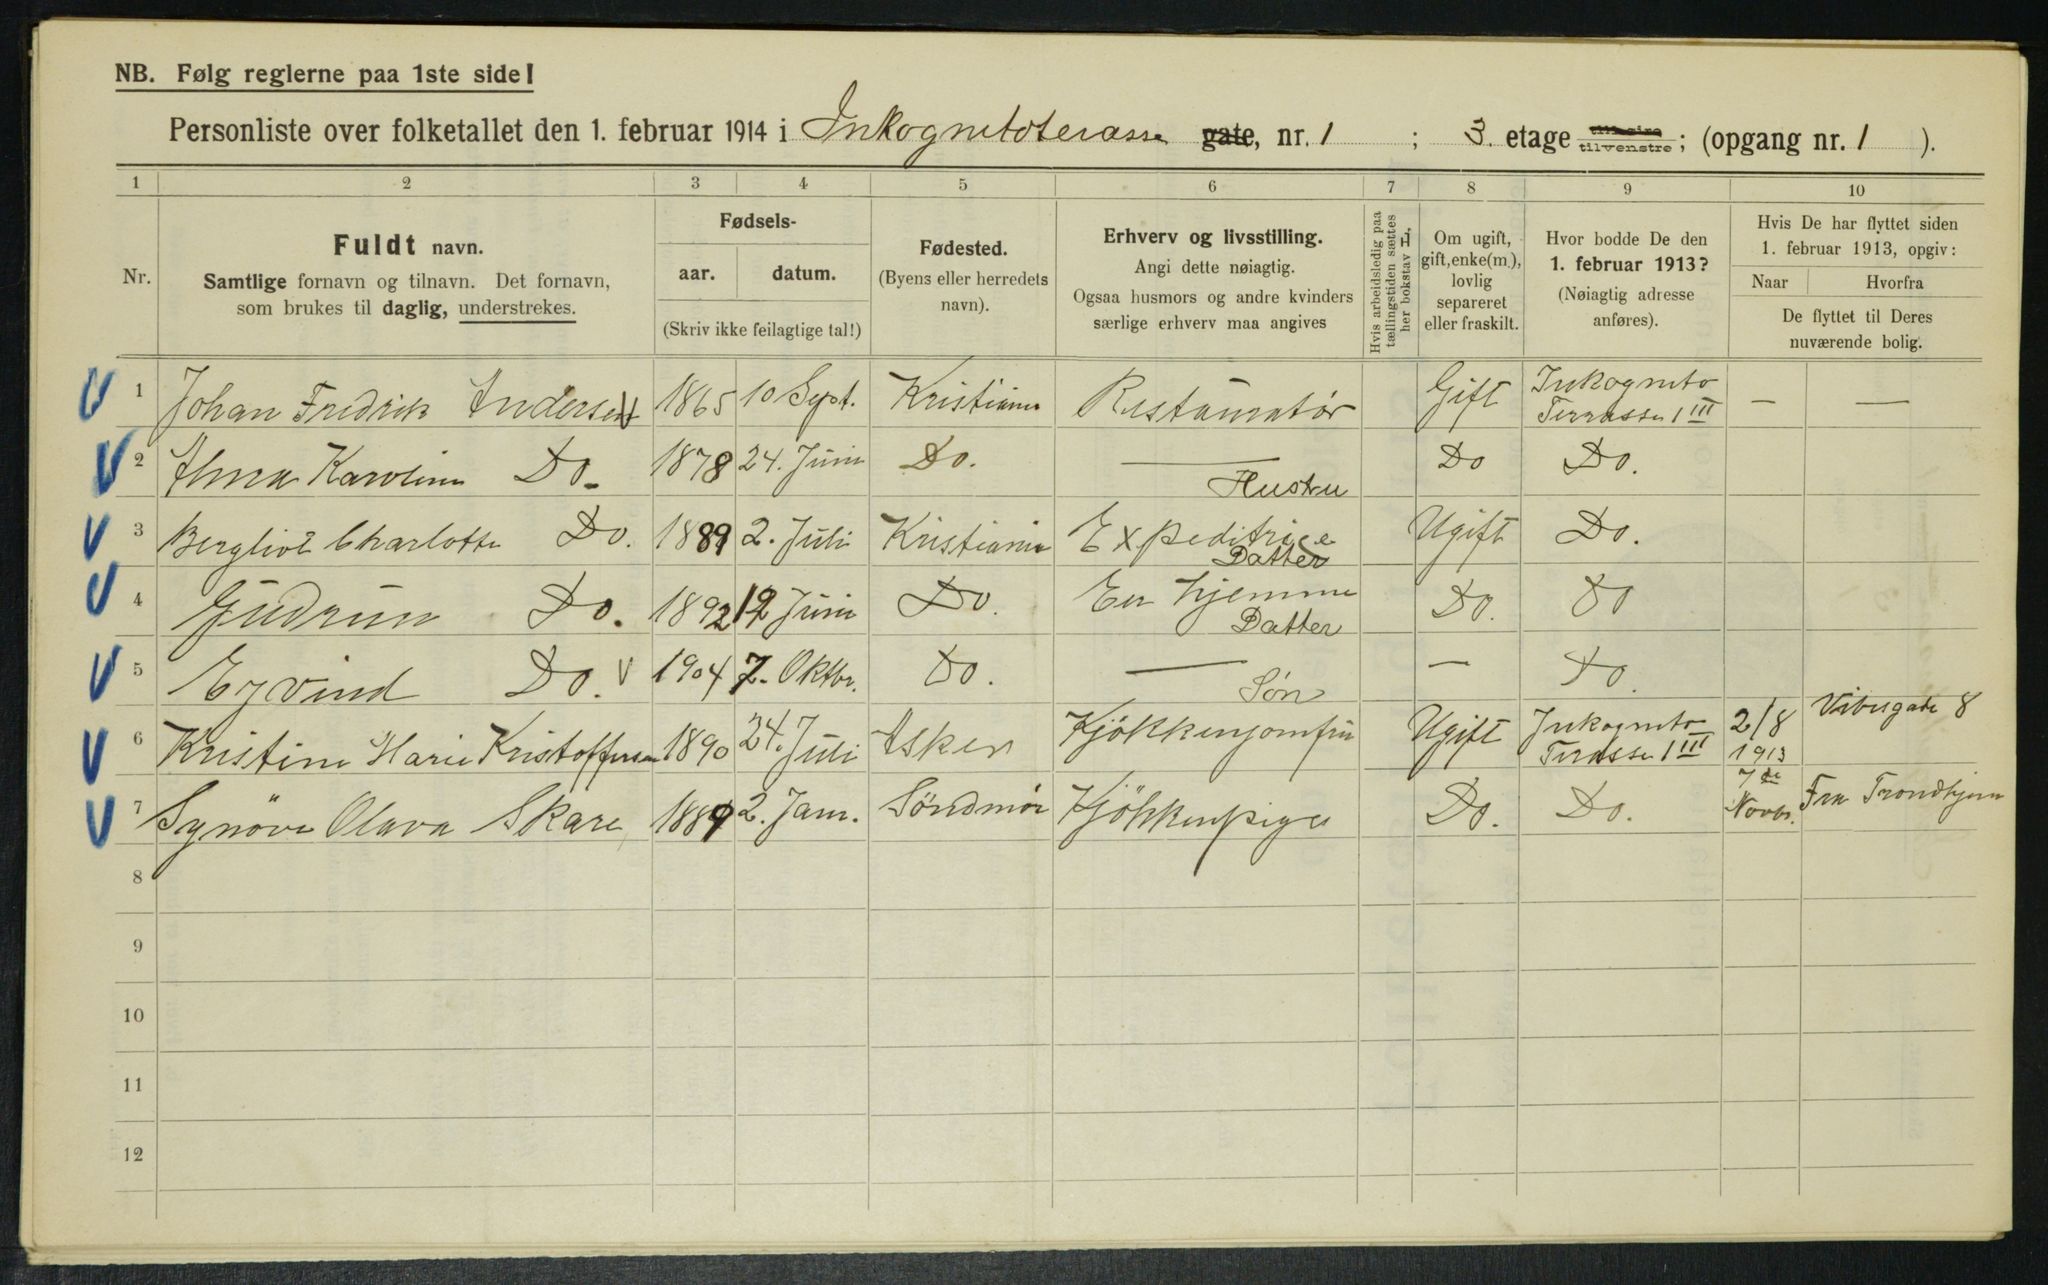 NB. Følg reglerne paa 1ste side!
Personliste over folketallet den 1. februar 1914 i Inkognitoterasse gate, nr. 1 ; 3. etage til høire tilvenstre; (opgang nr. 1 ).
1 2 3 4 5 6 7 8 9 10
Nr.
Fuldt navn.
Samtlige fornavn og tilnavn. Det fornavn,
som brukes til daglig, understrekes.
Fødsels-
aar. datum.
(Skriv ikke feilagtige tal!)
Fødested.
(Byens eller herredets
navn).
Erhverv og livsstilling.
Angi dette nøiagtig.
Ogsaa husmors og andre kvinders
særlige erhverv maa angives
Hvis arbeidsledig paa
tællingstiden sættes
her bokstav L.
Om ugift,
gift, enke(m.),
lovlig
separeret
eller fraskilt.
Hvor bodde De den
1. februar 1913?
(Nøiagtig adresse
anføres).
Hvis De har flyttet siden
1. februar 1913, opgiv:
Naar Hvorfra
De flyttet til Deres
nuværende bolig.
1 Johan Fredrik Andersen 1865 10 Sept. Kristiania Restauratør Gift Inkognito
Terrasse 1 III — —
2 Alma Karoline Do. 1878 24. Juni Do. — Hustru Do Do.
3 Bergliot Charlotte Do. 1889 2. Juli Kristiania Expeditrice
Datter Ugift Do.
4 Gudrun Do. 1892 12 Juni Do. Er hjemme
Datter Do. Do
5 Eyvind Do. 1904 7. Oktbr. Do. — Søn — Do.
6 Kristine Marie Kristoffersen 1890 24. Juli Asker Kjökkenjomfru Ugift Inkognito
Terasse 1 III 2/8
1913 Vibesgade 8
7 Synöve Olava Skare 1889 2. Jan. Söndmör Kjökkenpige Do. Do. 7de
Novbr. Fra Trondhjem
8
9
10
11
12